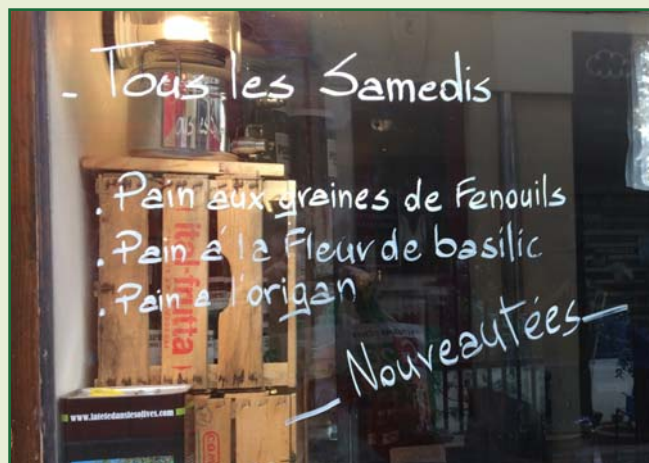 - Tous les Samedis
. Pain aux graines de Fenouils
. Pain à la Fleur de basilic
. Pain a l'origan
— Nouveautées —
ita-frutta
www.latetedanslesolives.com